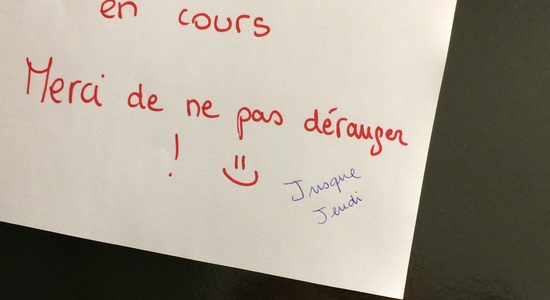 en cours
Merci de ne pas déranger
!
Jusque
Jeudi